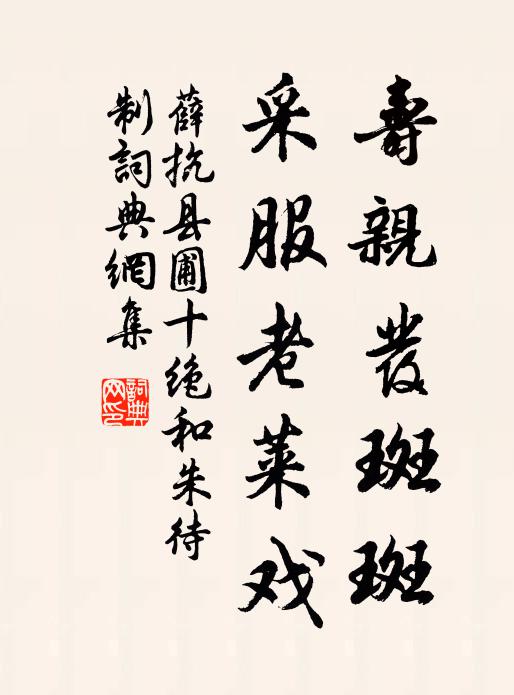 壽親发斑斑
采服老萊戏
薛抗县圃十绝和朱待
制詞典網集
詞典网印